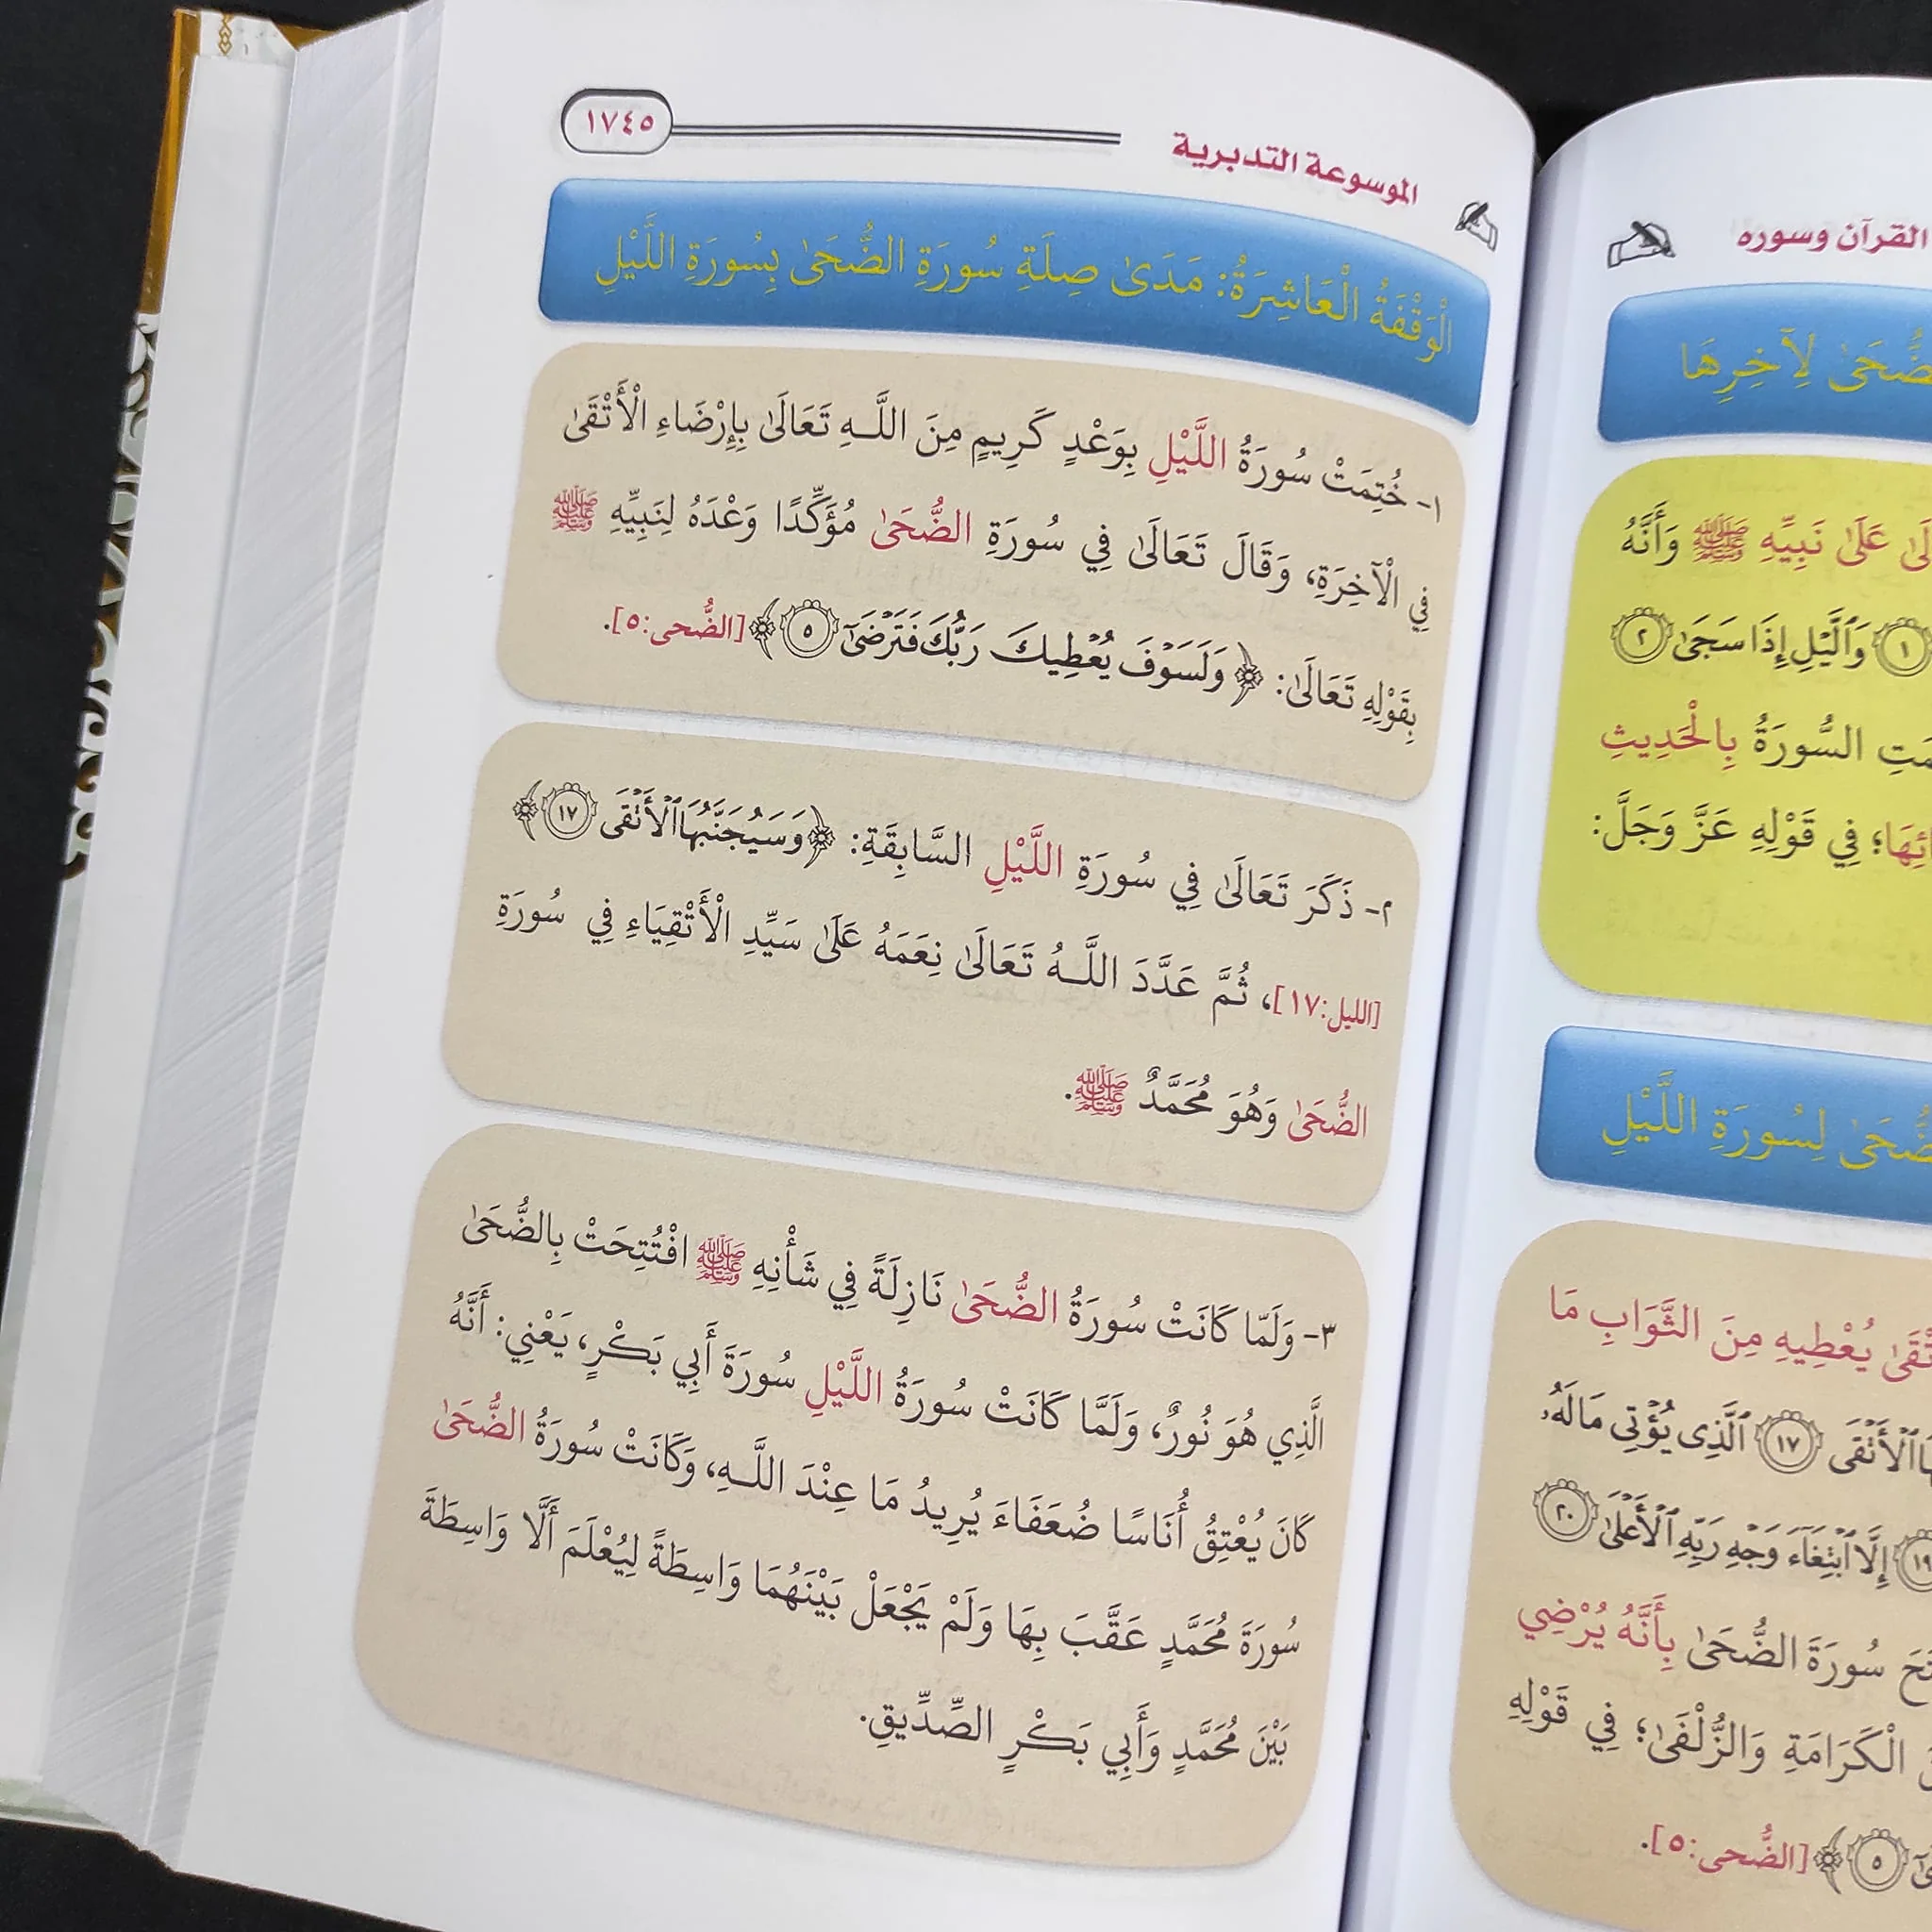 القرآن وسوره
ضُّحَىٰ لِآخِرِهَا
عَلَىٰ نَبِيِّهِ ﷺ وَأَنَّهُ
١ وَٱلَّيۡلِ إِذَا سَجَىٰ ٢
السُّورَةُ بِالْحَدِيثِ
فِي قَوْلِهِ عَزَّ وَجَلَّ:
ضُّحَىٰ لِسُورَةِ اللَّيْلِ
يُعْطِيهِ مِنَ الثَّوَابِ مَا
ٱلۡأَتۡقَى ١٧ ٱلَّذِي يُؤۡتِي مَالَهُۥ
١٩ إِلَّا ٱبۡتِغَآءَ وَجۡهِ رَبِّهِ ٱلۡأَعۡلَىٰ ٢٠
سُورَةَ الضُّحَىٰ بِأَنَّهُ يُرْضِي
الْكَرَامَةِ وَالزُّلْفَىٰ؛ فِي قَوْلِهِ
٥ ﴾ [الضُّحى:٥].
الموسوعة التدبرية
١٧٤٥
الْوَقْفَةُ الْعَاشِرَةُ: مَدَىٰ صِلَةِ سُورَةِ الضُّحَىٰ بِسُورَةِ اللَّيْلِ
١- خُتِمَتْ سُورَةُ اللَّيْلِ بِوَعْدٍ كَرِيمٍ مِنَ اللَّـهِ تَعَالَىٰ بِإِرْضَاءِ الْأَتْقَىٰ
فِي الْآخِرَةِ، وَقَالَ تَعَالَىٰ فِي سُورَةِ الضُّحَىٰ مُؤَكِّدًا وَعْدَهُ لِنَبِيِّهِ ﷺ
بِقَوْلِهِ تَعَالَىٰ: ﴿ وَلَسَوۡفَ يُعۡطِيكَ رَبُّكَ فَتَرۡضَىٰٓ ٥ ﴾ [الضُّحى:٥].
٢- ذَكَرَ تَعَالَىٰ فِي سُورَةِ اللَّيْلِ السَّابِقَةِ: ﴿ وَسَيُجَنَّبُهَا ٱلۡأَتۡقَى ١٧ ﴾
[الليل:١٧]، ثُمَّ عَدَّدَ اللَّـهُ تَعَالَىٰ نِعَمَهُ عَلَىٰ سَيِّدِ الْأَتْقِيَاءِ فِي سُورَةِ
الضُّحَىٰ وَهُوَ مُحَمَّدٌ ﷺ.
٣- وَلَمّا كَانَتْ سُورَةُ الضُّحَىٰ نَازِلَةً فِي شَأْنِهِ ﷺ افْتُتِحَتْ بِالضُّحَىٰ
الَّذِي هُوَ نُورٌ، وَلَمَّا كَانَتْ سُورَةُ اللَّيْلِ سُورَةَ أَبِي بَكْرٍ، يَعْنِي: أَنَّهُ
كَانَ يُعْتِقُ أُنَاسًا ضُعَفَاءَ يُرِيدُ مَا عِنْدَ اللَّـهِ، وَكَانَتْ سُورَةُ الضُّحَىٰ
سُورَةَ مُحَمَّدٍ عَقَّبَ بِهَا وَلَمْ يَجْعَلْ بَيْنَهُمَا وَاسِطَةً لِيُعْلَمَ أَلَّا وَاسِطَةَ
بَيْنَ مُحَمَّدٍ وَأَبِي بَكْرٍ الصِّدِّيقِ.